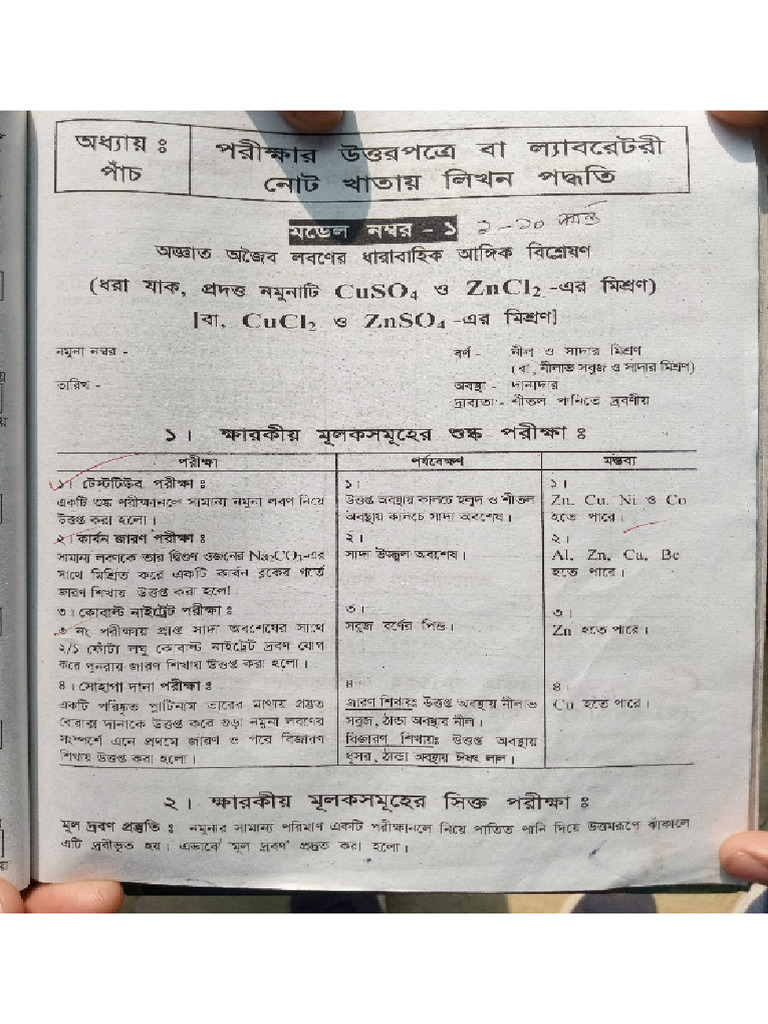 অধ্যায় ঃ
পাঁচ
পরীক্ষার উত্তরপত্রে বা ল্যাবরেটরী
নোট খাতায় লিখন পদ্ধতি
মডেল নম্বর - ১
অজ্ঞাত অজৈব লবণের ধারাবাহিক আঙ্গিক বিশ্লেষণ
(ধরা যাক, প্রদত্ত নমুনাটি CuSO₄ ও ZnCl₂ -এর মিশ্রণ)
[বা, CuCl₂ ও ZnSO₄ -এর মিশ্রণ]
নমুনা নম্বর -
তারিখ -
বর্ণ - নীল ও সাদার মিশ্রণ
(বা, নীলাভ সবুজ ও সাদার মিশ্রণ)
অবস্থা - দানাদার
দ্রাব্যতা - শীতল পানিতে দ্রবণীয়
১। ক্ষারকীয় মূলকসমূহের শুষ্ক পরীক্ষা ঃ
পরীক্ষা পর্যবেক্ষণ মন্তব্য
১। টেস্টটিউব পরীক্ষা ঃ
একটি শুষ্ক পরীক্ষানলে সামান্য নমুনা লবণ নিয়ে
উত্তপ্ত করা হলো।
১।
উত্তপ্ত অবস্থায় কালচে হলুদ ও শীতল
অবস্থায় কালচে সাদা অবশেষ।
১।
Zn, Cu, Ni ও Co
হতে পারে।
২। কার্বন জারণ পরীক্ষা ঃ
সামান্য লবণকে তার দ্বিগুণ ওজনের Na₂CO₃-এর
সাথে মিশ্রিত করে একটি কার্বন ব্লকের গর্তে
জারণ শিখায় উত্তপ্ত করা হলো।
২।
সাদা উজ্জ্বল অবশেষ।
২।
Al, Zn, Ca, Be
হতে পারে।
৩। কোবাল্ট নাইট্রেট পরীক্ষা ঃ
নং পরীক্ষায় প্রাপ্ত সাদা অবশেষের সাথে
২/১ ফোঁটা লঘু কোবাল্ট নাইট্রেট দ্রবণ যোগ
করে পুনরায় জারণ শিখায় উত্তপ্ত করা হলো।
৩।
সবুজ বর্ণের পিন্ড।
৩।
Zn হতে পারে।
৪। সোহাগা দানা পরীক্ষা ঃ
একটি পরিষ্কৃত প্লাটিনাম তারের মাথায় প্রস্তুত
বোরাক্স দানাকে উত্তপ্ত করে গুড়া নমুনা লবণের
সংস্পর্শে এনে প্রথমে জারণ ও পরে বিজারণ
শিখায় উত্তপ্ত করা হলো।
৪।
জারণ শিখায়ঃ উত্তপ্ত অবস্থায় নীলাভ
সবুজ, ঠান্ডা অবস্থায় নীল।
বিজারণ শিখায়ঃ উত্তপ্ত অবস্থায়
ধূসর, ঠান্ডা অবস্থায় ঈষৎ লাল।
৪।
Cu হতে পারে।
২। ক্ষারকীয় মূলকসমূহের সিক্ত পরীক্ষা ঃ
মূল দ্রবণ প্রস্তুতি ঃ নমুনার সামান্য পরিমাণ একটি পরীক্ষানলে নিয়ে পাতিত পানি দিয়ে উত্তমরূপে ঝাঁকালে
এটি দ্রবীভূত হয়। এভাবে 'মূল দ্রবণ' প্রস্তুত করা হলো।